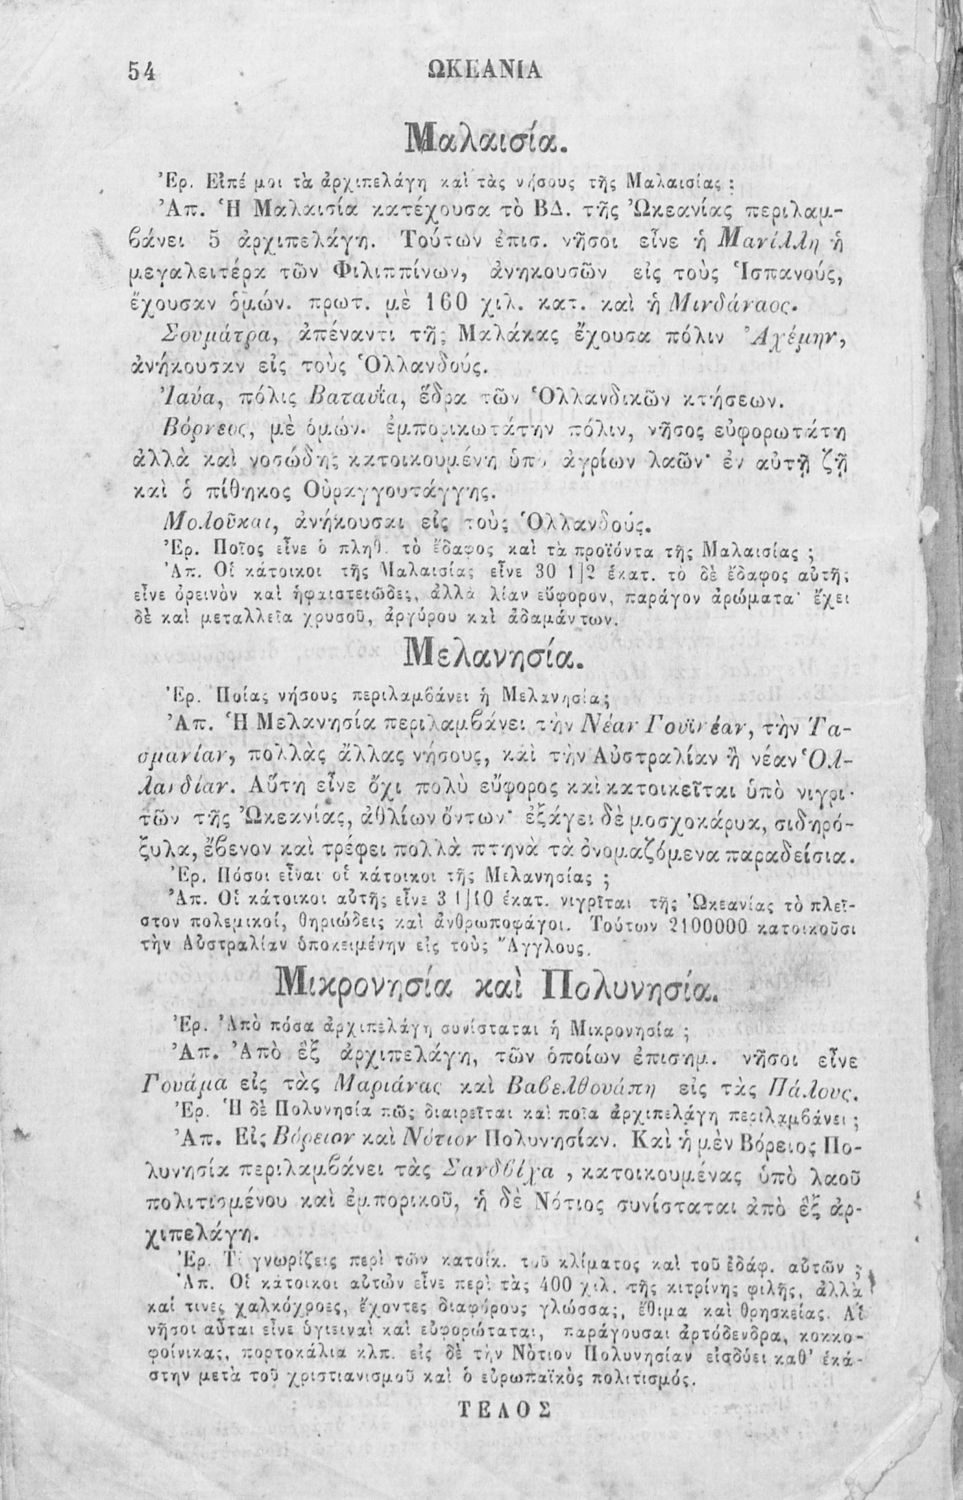 54 ΩΚΕΑΝΙΑ
Μαλαισία.
Ἐρ. Εἰπέ μοι τὰ ἀρχιπελάγη καὶ τὰς νήσους τῆς Μαλαισίας ;
Ἀπ. Ἡ Μαλαισία κατέχουσα τὸ ΒΔ. τῆς Ὠκεανίας περιλαμ-
βάνει 5 ἀρχιπελάγη. Τούτων ἐπισ. νῆσοι εἶνε ἡ Μανίλλη ἡ
μεγαλειτέρα τῶν Φιλιππίνων, ἀνηκουσῶν εἰς τοὺς Ἱσπανούς,
ἔχουσαν ὁμών. πρωτ. μὲ 160 χιλ. κατ. καὶ ἡ Μινδάναος.
Σουμάτρα, ἀπέναντι τῆς Μαλάκας ἔχουσα πόλιν Ἀχέμην,
ἀνήκουσαν εἰς τοὺς Ὁλλανδούς.
Ἰαύα, πόλις Βαταυΐα, ἕδρα τῶν Ὁλλανδικῶν κτήσεων.
Βόρνεος, μὲ ὁμών. ἐμπορικωτάτην πόλιν, νῆσος εὐφορωτάτη
ἀλλὰ καὶ νοσώδης κατοικουμένη ὑπὸ ἀγρίων λαῶν· ἐν αὐτῇ ζῇ
καὶ ὁ πίθηκος Οὐραγγουτάγγης.
Μολοῦκαι, ἀνήκουσαι εἰς τοὺς Ὁλλανδούς.
Ἐρ. Ποῖος εἶνε ὁ πληθ. τὸ ἔδαφος καὶ τὰ προϊόντα τῆς Μαλαισίας ;
Ἀπ. Οἱ κάτοικοι τῆς Μαλαισίας εἶνε 30 1|2 ἑκατ. τὸ δὲ ἔδαφος αὐτῆς
εἶνε ὀρεινὸν καὶ ἡφαιστειῶδες, ἀλλὰ λίαν εὔφορον, παράγον ἀρώματα· ἔχει
δὲ καὶ μεταλλεῖα χρυσοῦ, ἀργύρου καὶ ἀδαμάντων.
Μελανησία.
Ἐρ. Ποίας νήσους περιλαμβάνει ἡ Μελανησία;
Ἀπ. Ἡ Μελανησία περιλαμβάνει τὴν Νέαν Γουϊνέαν, τὴν Τα-
σμανίαν, πολλὰς ἄλλας νήσους, καὶ τὴν Αὐστραλίαν ἢ νέαν Ὁλ-
λανδίαν. Αὕτη εἶνε ὄχι πολὺ εὔφορος καὶ κατοικεῖται ὑπὸ νιγρι-
τῶν τῆς Ὠκεανίας, ἀθλίων ὄντων· ἐξάγει δὲ μοσχοκάρυα, σιδηρό-
ξυλα, ἔβενον καὶ τρέφει πολλὰ πτηνὰ τὰ ὀνομαζόμενα παραδείσια.
Ἐρ. Πόσοι εἶναι οἱ κάτοικοι τῆς Μελανησίας ;
Ἀπ. Οἱ κάτοικοι αὐτῆς εἶνε 3 1|10 ἑκατ. νιγρῖται τῆς Ὠκεανίας τὸ πλεῖ-
στον πολεμικοί, θηριώδεις καὶ ἀνθρωποφάγοι. Τούτων 2100000 κατοικοῦσι
τὴν Αὐστραλίαν ὑποκειμένην εἰς τοὺς Ἄγγλους.
Μικρονησία καὶ Πολυνησία.
Ἐρ. Ἀπὸ πόσα ἀρχιπελάγη συνίσταται ἡ Μικρονησία ;
Ἀπ. Ἀπὸ ἓξ ἀρχιπελάγη, τῶν ὁποίων ἐπισημ. νῆσοι εἶνε
Γουάμα εἰς τὰς Μαριάνας καὶ Βαβελθουάπη εἰς τὰς Πάλους.
Ἐρ. Ἡ δὲ Πολυνησία πῶς διαιρεῖται καὶ ποῖα ἀρχιπελάγη περιλαμβάνει ;
Ἀπ. Εἰς Βόρειον καὶ Νότιον Πολυνησίαν. Καὶ ἡ μὲν Βόρειος Πο-
λυνησία περιλαμβάνει τὰς Σανδβίχα , κατοικουμένας ὑπὸ λαοῦ
πολιτισμένου καὶ ἐμπορικοῦ, ἡ δὲ Νότιος συνίσταται ἀπὸ ἓξ ἀρ-
χιπελάγη.
Ἐρ. Τί γνωρίζεις περὶ τῶν κατοίκ. τοῦ κλίματος καὶ τοῦ ἐδάφ. αὐτῶν ;
Ἀπ. Οἱ κάτοικοι αὐτῶν εἶνε περὶ τὰς 400 χιλ. τῆς κιτρίνης φιλῆς, ἀλλὰ
καί τινες χαλκόχροες, ἔχοντες διαφόρους γλώσσας, ἔθιμα καὶ θρησκείας. Αἱ
νῆσοι αὗται εἶνε ὑγιειναὶ καὶ εὐφορώταται, παράγουσαι ἀρτόδενδρα, κοκκο-
φοίνικας, πορτοκάλια κλπ. εἰς δὲ τὴν Νότιον Πολυνησίαν εἰσδύει καθ’ ἑκά-
στην μετὰ τοῦ χριστιανισμοῦ καὶ ὁ εὐρωπαϊκὸς πολιτισμός.
ΤΕΛΟΣ